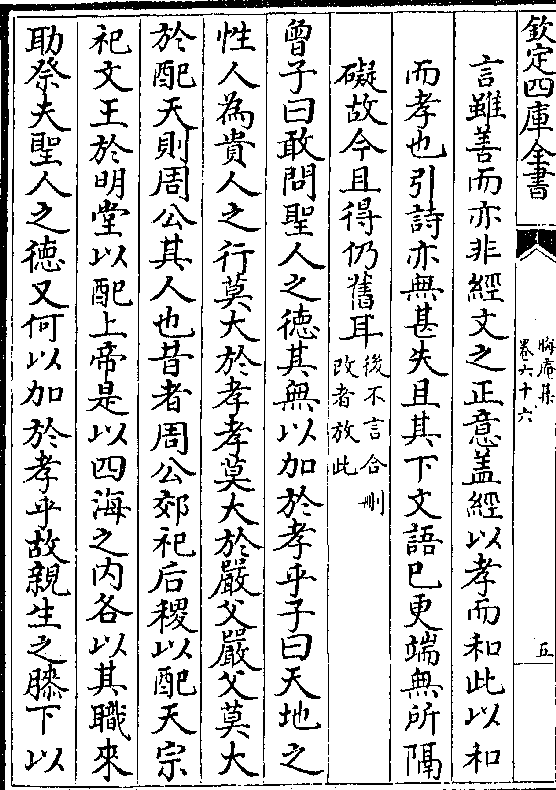 欽定四庫全書
晦庵集
卷六十六
五
言雖善而亦非經文之正意蓋經以孝而和此以和
而孝也引詩亦無甚失且其下文語已更端無所隔
礙故今且得仍舊耳後不言合刪
改者放此
曾子曰敢問聖人之德其無以加於孝乎子曰天地之
性人為貴人之行莫大於孝孝莫大於嚴父嚴父莫大
於配天則周公其人也昔者周公郊祀后稷以配天宗
祀文王於明堂以配上帝是以四海之内各以其職來
助祭夫聖人之德又何以加於孝乎故親生之膝下以